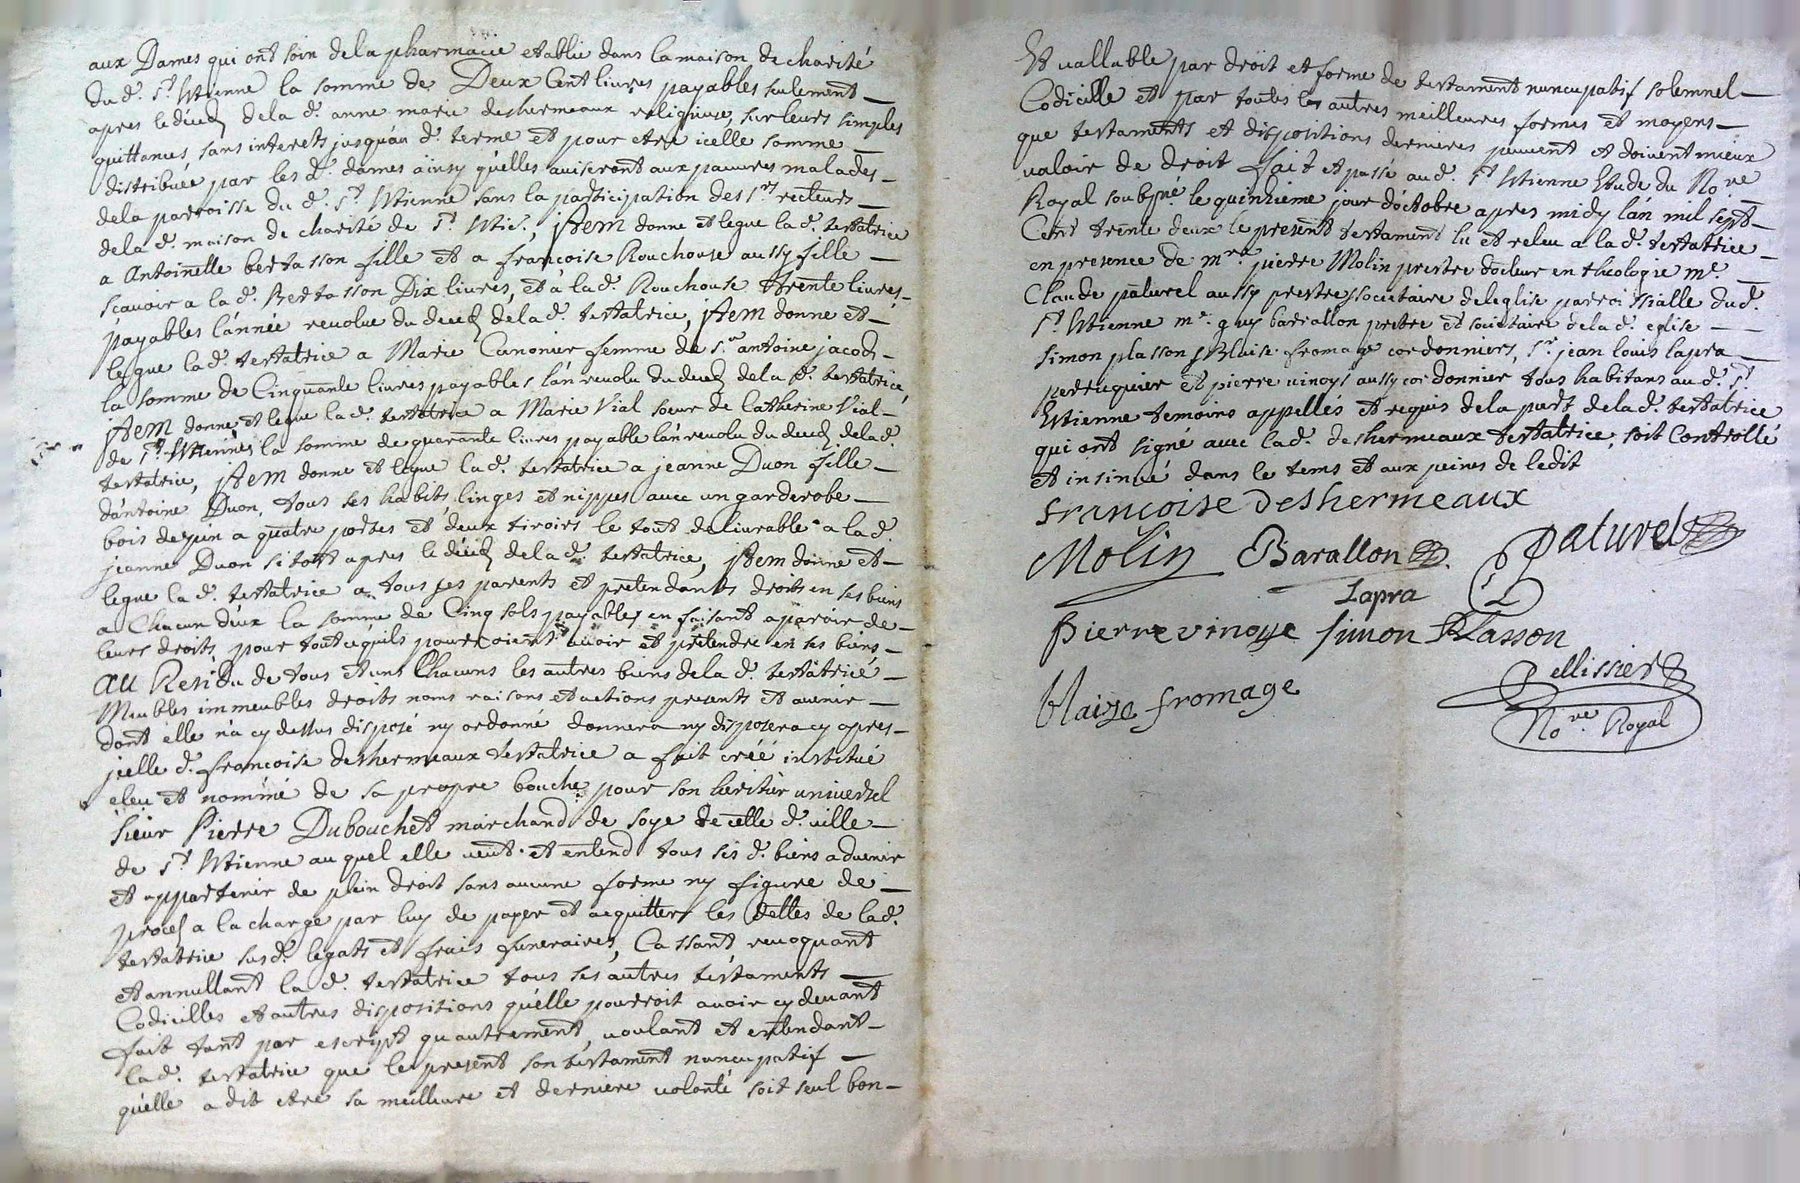 aux Dames qui ont soin de la pharmacie etablie dans la maison de charité
du d. St. Etienne la somme de Deux Cent livres payables seulement
apres le deced de la d. anne marie deshermeaux religieuse, sur leurs simples
quittances, sans interests jusqu'au d. terme et pour etre icelle somme
distribuée par les d. dames ainsy qu'elles aviseront aux pauvres malades
de la parroisse du d. St. Etienne sans la participation des Srs recteurs
de la d. maison de charité de St. Etie., Item donne et legue la d. testatrice
a Antoinette bertasson fille et a francoise Rouchouse aussy fille
scavoir a la d. Bertasson Dix livres, et à la d. Rouchouse trente livres
payables l'année revolue du deced de la d. testatrice, Item donne et
legue la d. testatrice a Marie Canonier femme de Sr. antoine jacod
la somme de Cinquante livres payables l'an revolu du deced de la d. testatrice,
Item donne et legue la d. testatrice a Marie Vial soeur de Catherine Vial
de St. Etienne, la somme de quarante livres payable l'an revolu du deced de la d.
testatrice, Item donne et legue la d. testatrice a jeanne Duon fille
d'antoine Duon, tous ses habits linges et nippes avec un garderobe
bois de pin a quatre portes et deux tiroirs le tout delivrable a la d.
jeanne Duon sitost apres le deced de la d. testatrice, Item donne et
legue la d. testatrice a tous ses parents et pretendants droits en ses biens
a Chacun d'eux la somme de Cinq sols payables en faisant aparoir de
leurs droits pour tout ce quils pourroient avoir et pretendre en ses biens
au Residu de tous et uns Chacuns les autres biens de la d. testatrice
Meubles immeubles droits noms raisons et actions presents et avenir
dont elle n'a cy dessus disposé ny ordonné donnera ny disposera cy apres
jcelle d. francoise deshermeaux testatrice a fait créé institué
eleu et nommé de sa propre bouche pour son heritier universel
sieur Pierre Dubouchet marchand de soye de celle d. ville
de St. Etienne auquel elle veut et entend tous ses d. biens advenir
et appartenir de plein droit sans aucune forme ny figure de
proces a la charge par luy de payer et acquitter les dettes de la d.
testatrice sus d. legats et frais funeraires, Cassant, revoquant
et annullant la d. testatrice tous ses autres testaments
Codicilles et autres dispositions qu'elle pourroit avoir cy devant
fait tant par escript qu'autrement, voulant et entendant
la d. testatrice que le present son testament nuncupatif
qu'elle a dit etre sa meilleure et derniere volonté soit seul bon
Et vallable par droit et forme de testament nuncupatif solemnel
Codicille et par toutes les autres meilleures formes et moyens
que testaments et dispositions dernieres peuvent et doivent mieux
valoir de droit fait et passé au d. St Etienne Etude du Nore
Royal soubsne le quinzieme jour d'octobre apres midy l'an mil sept
Cent trente deux le present testament lu et releu a la d. testatrice
en presence de mre. pierre Molin prestre docteur en theologie me.
Claude paturel aussy prestre societaire de leglise parroissialle du d.
St. Etienne me. guy barrallon prestre et societaire de la d. eglise
simon plasson & Blaise fromage cordonniers, Sr. jean louis lapra
perruquier et pierre vinoys aussy cordonnier tous habitans au d. St.
Estienne temoins appellés et requis de la part de la d. testatrice
qui ont signé avec la d. deshermeaux testatrice, soit Controllé
et insinué dans le tems et aux peines de ledit
francoise Deshermeaux
Molin Barallon Paturel
Lapra
Pierre vinoye simon Plasson
Pellissier
blaize fromage
Nore. Royal